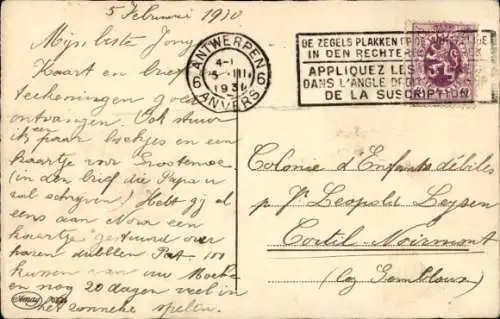 5 Februari 1930
Mijn beste Jong
Kaart en brief
teekeningen goed
ontvangen. Ook stuur
ik een paar boekjes en een
kaartje voor Grootemoe
(in den brief die Papa u
zal schrijven) Hebt gij al
eens aan Nora een
kaartje gestuurd over
haren dubblen Pat. 100
kussen van uw Moeke
en nog 20 dagen veel in
het zonneke spelen.
ANTWERPEN
4-1
5-III
1930
6 6
ANVERS
DE ZEGELS PLAKKEN
IN DEN RECHTER
APPLIQUEZ LES
DANS L'ANGLE
DE LA SUSCRIPTION
Colonie d'Enfants débiles
p/r Leopold Leysen
Cortil-Noirmont
(by Gembloux)